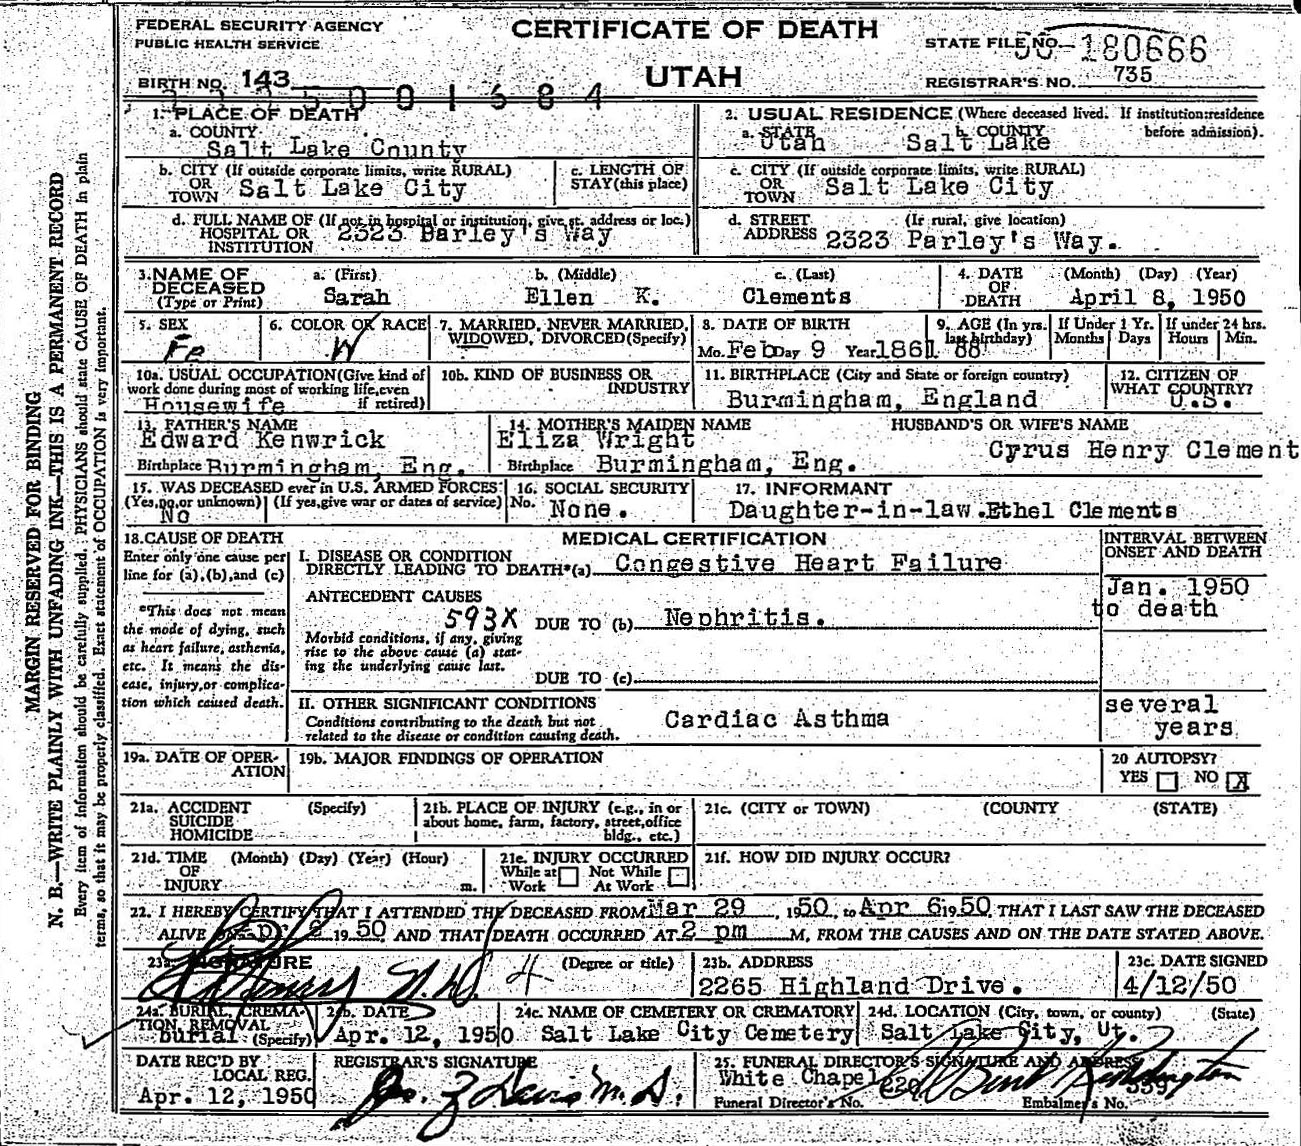 FEDERAL SECURITY AGENCY
PUBLIC HEALTH SERVICE
CERTIFICATE OF DEATH
UTAH
STATE FILE NO. 50-180666
REGISTRAR'S NO. 735
BIRTH NO. 143
5001684
1. PLACE OF DEATH
a. COUNTY
Salt Lake County
2. USUAL RESIDENCE (Where deceased lived. If institution:residence before admission).
a. STATE Utah b. COUNTY Salt Lake
b. CITY (If outside corporate limits, write RURAL)
OR TOWN Salt Lake City
c. LENGTH OF STAY (this place)
c. CITY (If outside corporate limits, write RURAL)
OR TOWN Salt Lake City
d. FULL NAME OF (If not in hospital or institution, give st. address or loc.)
HOSPITAL OR INSTITUTION 2323 Barley's Way
d. STREET ADDRESS (If rural, give location)
2323 Parley's Way.
3. NAME OF DECEASED (Type or Print)
a. (First) Sarah
b. (Middle) Ellen K.
c. (Last) Clements
4. DATE OF DEATH (Month) (Day) (Year)
April 8, 1950
5. SEX
Fe
6. COLOR OR RACE
W
7. MARRIED, NEVER MARRIED, WIDOWED, DIVORCED(Specify)
8. DATE OF BIRTH
Mo. Feb Day 9 Year 1861
9. AGE (In yrs. last birthday) 88
If Under 1 Yr. Months Days
If under 24 hrs. Hours Min.
10a. USUAL OCCUPATION(Give kind of work done during most of working life,even if retired)
Housewife
10b. KIND OF BUSINESS OR INDUSTRY
11. BIRTHPLACE (City and State or foreign country)
Burmingham, England
12. CITIZEN OF WHAT COUNTRY?
U.S.
13. FATHER'S NAME
Edward Kenwrick
Birthplace Burmingham, Eng.
14. MOTHER'S MAIDEN NAME
Eliza Wright
Birthplace Burmingham, Eng.
HUSBAND'S OR WIFE'S NAME
Cyrus Henry Clement
15. WAS DECEASED ever in U.S. ARMED FORCES?
(Yes,no,or unknown) (If yes,give war or dates of service)
No
16. SOCIAL SECURITY No.
None.
17. INFORMANT
Daughter-in-law.Ethel Clements
18. CAUSE OF DEATH
Enter only one cause per line for (a),(b),and (c)
*This does not mean the mode of dying, such as heart failure, asthenia, etc. It means the disease, injury,or complication which caused death.
MEDICAL CERTIFICATION
INTERVAL BETWEEN ONSET AND DEATH
I. DISEASE OR CONDITION DIRECTLY LEADING TO DEATH*(a) Congestive Heart Failure
Jan. 1950
to death
ANTECEDENT CAUSES
593X DUE TO (b) Nephritis.
Morbid conditions, if any, giving rise to the above cause (a) stating the underlying cause last.
DUE TO (c)
II. OTHER SIGNIFICANT CONDITIONS
Conditions contributing to the death but not related to the disease or condition causing death.
Cardiac Asthma
several years
19a. DATE OF OPERATION
19b. MAJOR FINDINGS OF OPERATION
20 AUTOPSY?
YES NO X
21a. ACCIDENT SUICIDE HOMICIDE (Specify)
21b. PLACE OF INJURY (e.g., in or about home, farm, factory, street,office bldg., etc.)
21c. (CITY or TOWN) (COUNTY (STATE)
21d. TIME OF INJURY (Month) (Day) (Year) (Hour) m.
21e. INJURY OCCURRED
While at Work Not While At Work
21f. HOW DID INJURY OCCUR?
22. I HEREBY CERTIFY THAT I ATTENDED THE DECEASED FROM Mar 29, 1950, to Apr 6 1950, THAT I LAST SAW THE DECEASED
ALIVE ON 1950, AND THAT DEATH OCCURRED AT 2 pm M., FROM THE CAUSES AND ON THE DATE STATED ABOVE.
23a. SIGNATURE (Degree or title)
M.D. 4
23b. ADDRESS
2265 Highland Drive.
23c. DATE SIGNED
4/12/50
24a. BURIAL, CREMATION, REMOVAL (Specify)
burial
24b. DATE
Apr. 12, 1950
24c. NAME OF CEMETERY OR CREMATORY
Salt Lake City Cemetery
24d. LOCATION (City, town, or county) (State)
Salt Lake City, Ut.
DATE REC'D BY LOCAL REG.
Apr. 12, 1950
REGISTRAR'S SIGNATURE
25. FUNERAL DIRECTOR'S SIGNATURE AND ADDRESS
White Chapel
Funeral Director's No. 620
Embalmer's No. 539
MARGIN RESERVED FOR BINDING
N. B.—WRITE PLAINLY WITH UNFADING INK—THIS IS A PERMANENT RECORD
Every item of information should be carefully supplied. PHYSICIANS should state CAUSE OF DEATH in plain
terms, so that it may be properly classified. Exact statement of OCCUPATION is very important.